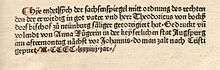 Hie endet sich der sachsenspiegel mit ordnung des rechten
den der erwirdig in got vater vnd herr Theodoricus von bockß
dorf bischof zů neünburg säliger gecorrigieret hat. Gedruckt vñ
volendet von Anna Rügerin in der keyserlichen stat Augspurg
am aftermontag nächst vor Johannis do man zalt nach Cristi
gepurt M CCCC lxxxiiij jar